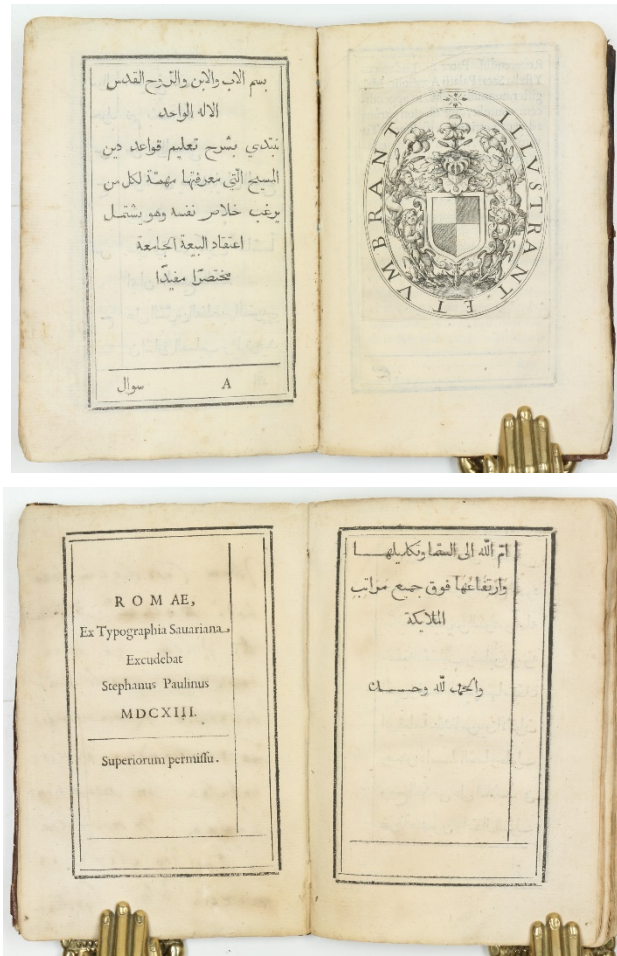 بسم الاب والابن والرّوح القدس
الاله الواحد
نبتدي بشرح تعليم قواعد دين
المسيح الّتي معرفتها مهمّة لكل من
يرغب خلاص نفسه وهو يشتمل
اعتقاد البيعة الجامعة
مختصرًا مفيدًا
سوال A
ILLVSTRANT ET VMBRANT
ROMAE,
Ex Typographia Sauariana,
Excudebat
Stephanus Paulinus
MDCXIII.
Superiorum permiſſu.
امّ الله الى السّما وتكليلهـــا
وارتفاعُها فوق جميع مَراتب
الملايكة
والحمد للّه وحـــده